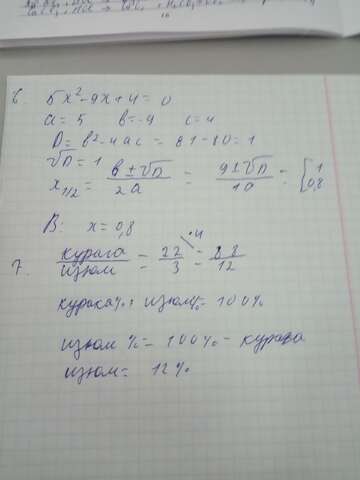 16
6. 5x²-9x+4=0
a=5 b=-9 c=4
D=b²-4ac=81-80=1
√D=1
x1/2= b±√D/2a = 9±√D/10 = [1 0,8
В: x=0,8
7. курага/изюм = 22/3 = 88/12 ·4
курага%+ изюм%= 100%
изюм %= 100%- курага
изюм= 12%